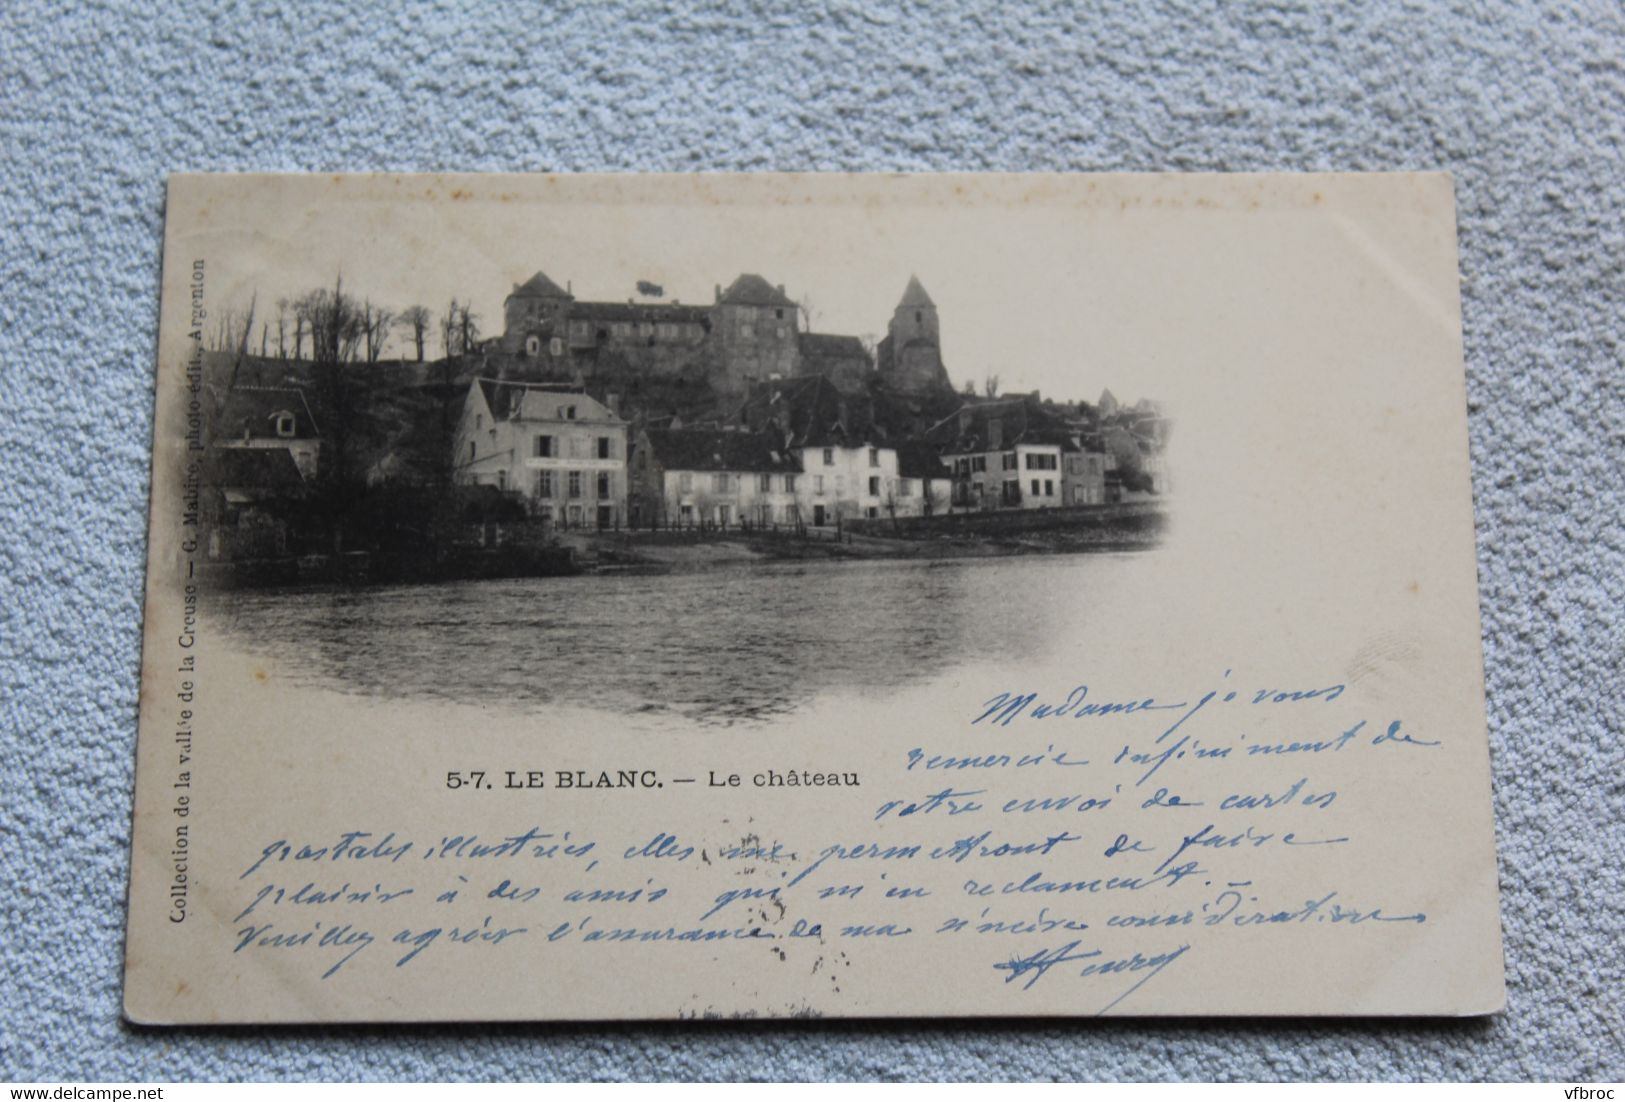 Collection de la vallée de la Creuse — G. Mabire, photo-édit., Argenton
5-7. LE BLANC. — Le château
Madame je vous
remercie infiniment de
votre envoi de cartes
postales illustrées, elles me permettront de faire
plaisir à des amis qui m'en reclament. –
Veuillez agréer l'assurance de ma sincère considération
delcampe.net
vfbroc